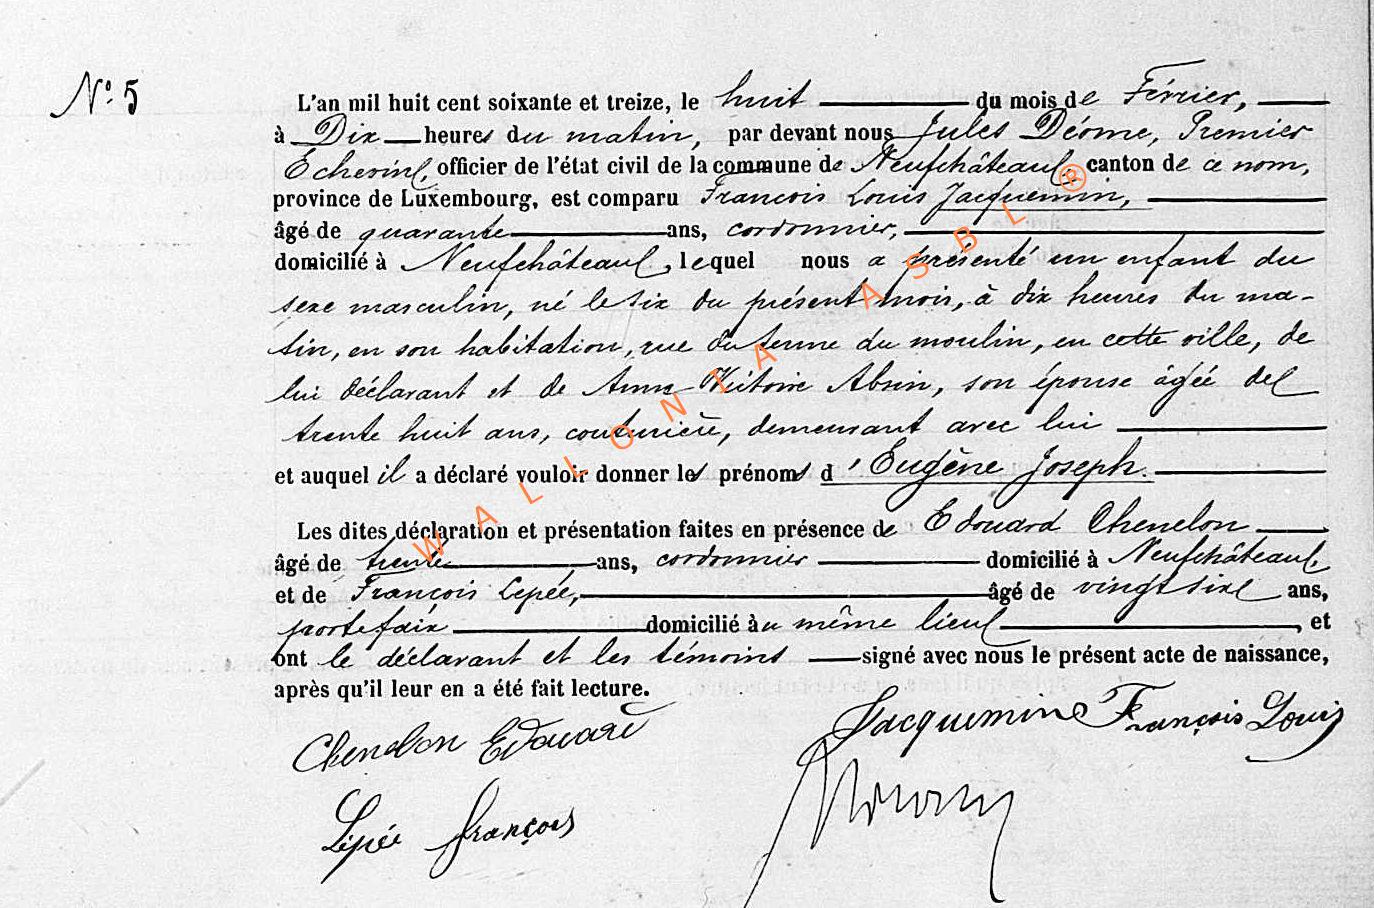 N° 5
L'an mil huit cent soixante et treize, le huit du mois de Février,
à Dix heures du matin, par devant nous Jules Déome, Premier
Echevin, officier de l'état civil de la commune de Neufchâteau, canton de ce nom,
province de Luxembourg, est comparu Francois Louis Jacquemin,
âgé de quarante ans, cordonnier,
domicilié à Neufchâteau, lequel nous a présenté un enfant du
sexe masculin, né le six du présent mois, à dix heures du ma-
tin, en son habitation, rue du terme du moulin, en cette ville, de
lui déclarant et de Anne Victoire Absin, son épouse âgée de
trente huit ans, couturière, demeurant avec lui
et auquel il a déclaré vouloir donner les prénoms d'Eugène Joseph.
Les dites déclaration et présentation faites en présence de Edouard Chenelon
âgé de trente ans, cordonnier domicilié à Neufchâteau,
et de François Lepée, âgé de vingt six ans,
portefaix domicilié au même lieu, et
ont le déclarant et les témoins signé avec nous le présent acte de naissance,
après qu'il leur en a été fait lecture.
Chenelon Edouard
Jacquemin François Louis
Lepée françois
WALLONIA ASBL ®